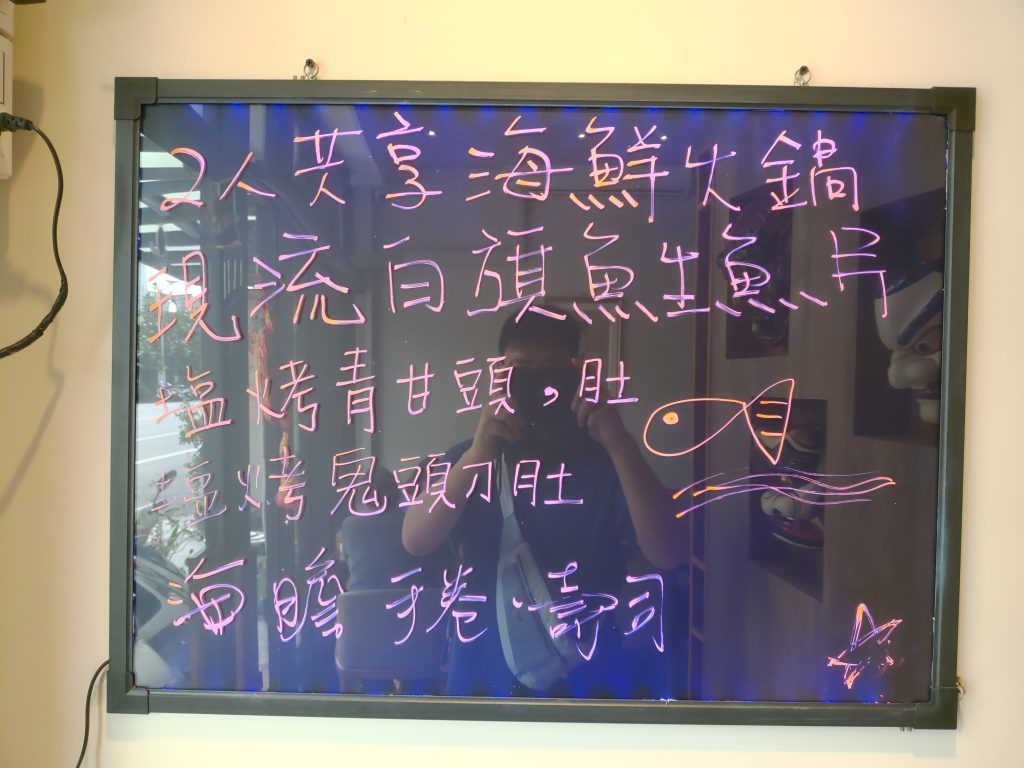 2人共享海鮮火鍋
現流白旗魚生魚片
塩烤青甘頭,肚
塩烤鬼頭刀肚
海膽手卷.壽司